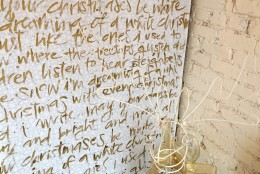 your christmases be white
dreaming of a white christm
just like the ones I used to
w where the treetops glisten a
dren listen to hear sleighbells
e snow i'm dreaming of a wh
christmas with every christmas
I write may your d
and bright and may
christmases be white
ing of a white chris
ones I used